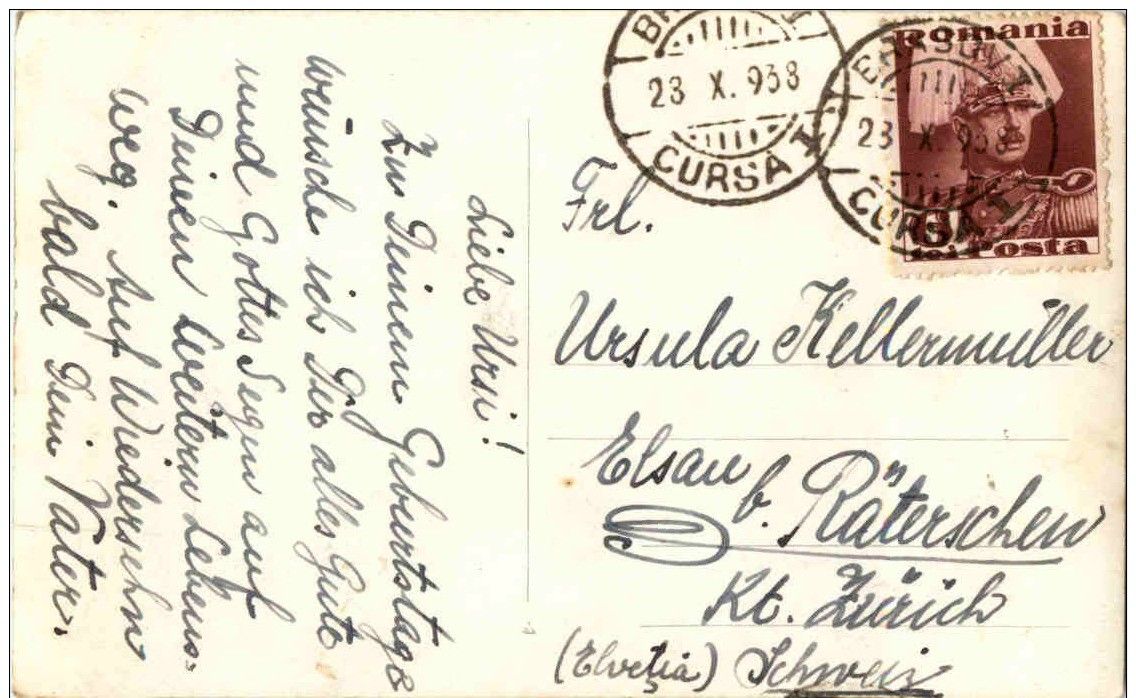 Liebe Ursi!
Zu Deinem Geburtstage
wünsche ich Dir alles Gute
und Gottes Segen auf
Deinen weitern Lebens=
weg. Auf Wiedersehn
bald Dein Vater.
23 X. 938
CURSA I
Romania
23 X. 938
CURSA I
lei Posta
Frl.
Ursula Kellermüller
Elsau
b. Räterschen
Kt. Zürich
(Elveția) Schweiz